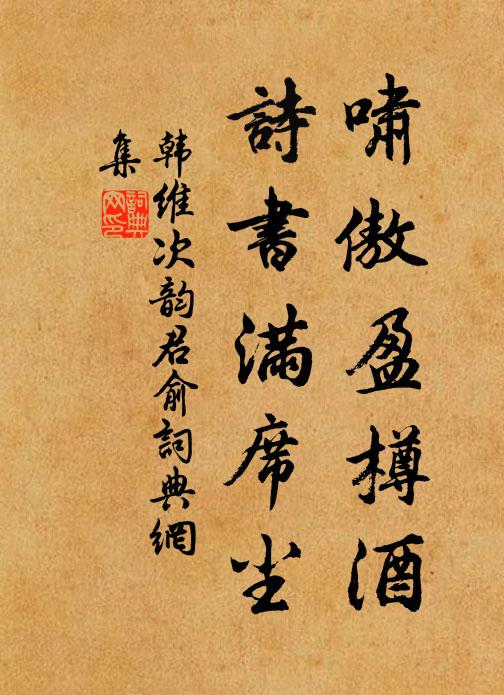 嘯傲盈樽酒
詩書滿席塵
韩维次韵君俞詞典網
集
詞典网印